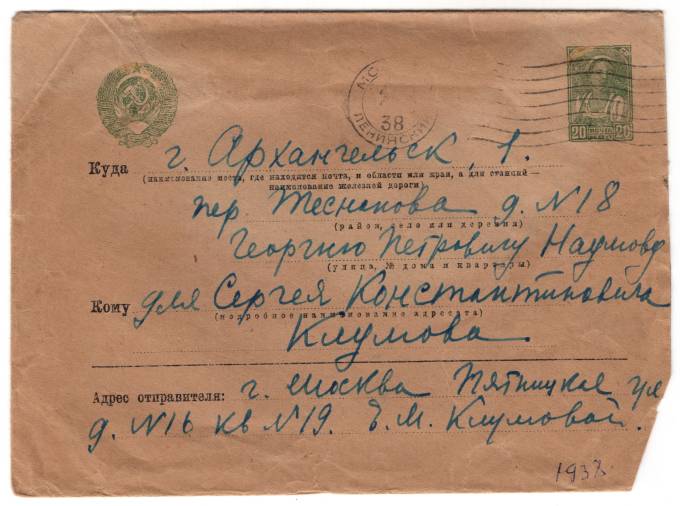 МОС
38
ЛЕНИНСКИЙ
20 ПОЧТА 20
Куда г. Архангельск, 1.
(наименование места, где находится почта, и области или края, а для станций—
наименование железной дороги)
пер. д. №18
(район, село или деревня)
Георгию Петровичу Наумову
(улица, № дома и квартиры)
Кому для Сергея Константиновича
(подробное наименование адресата)
Клумова
Адрес отправителя: г. Москва Пятницкая ул
д. №16 кв №19. Е. М. Клумовой.
1938.